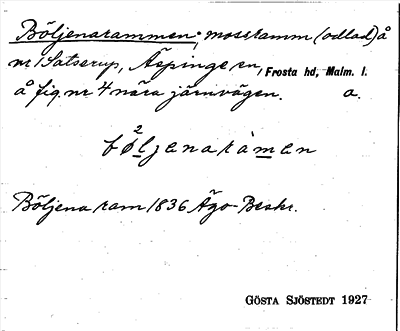 Böljenarammen; mosskamm (odlad) å
nr 1 Satserup, Äspinge sn, Frosta hd, Malm. l.
å fig. nr 4 nära järnvägen. a.
bø²ljenaramen
Böljena ram 1836 Ägo-Beskr.
GÖSTA SJÖSTEDT 1927